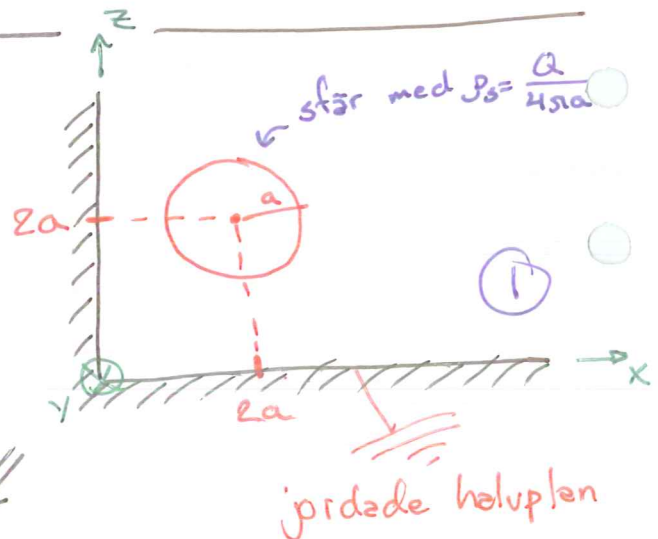 Z
sfär med ρs = Q / 4πa
a
2a
1
y
2a
x
jordade halvplan